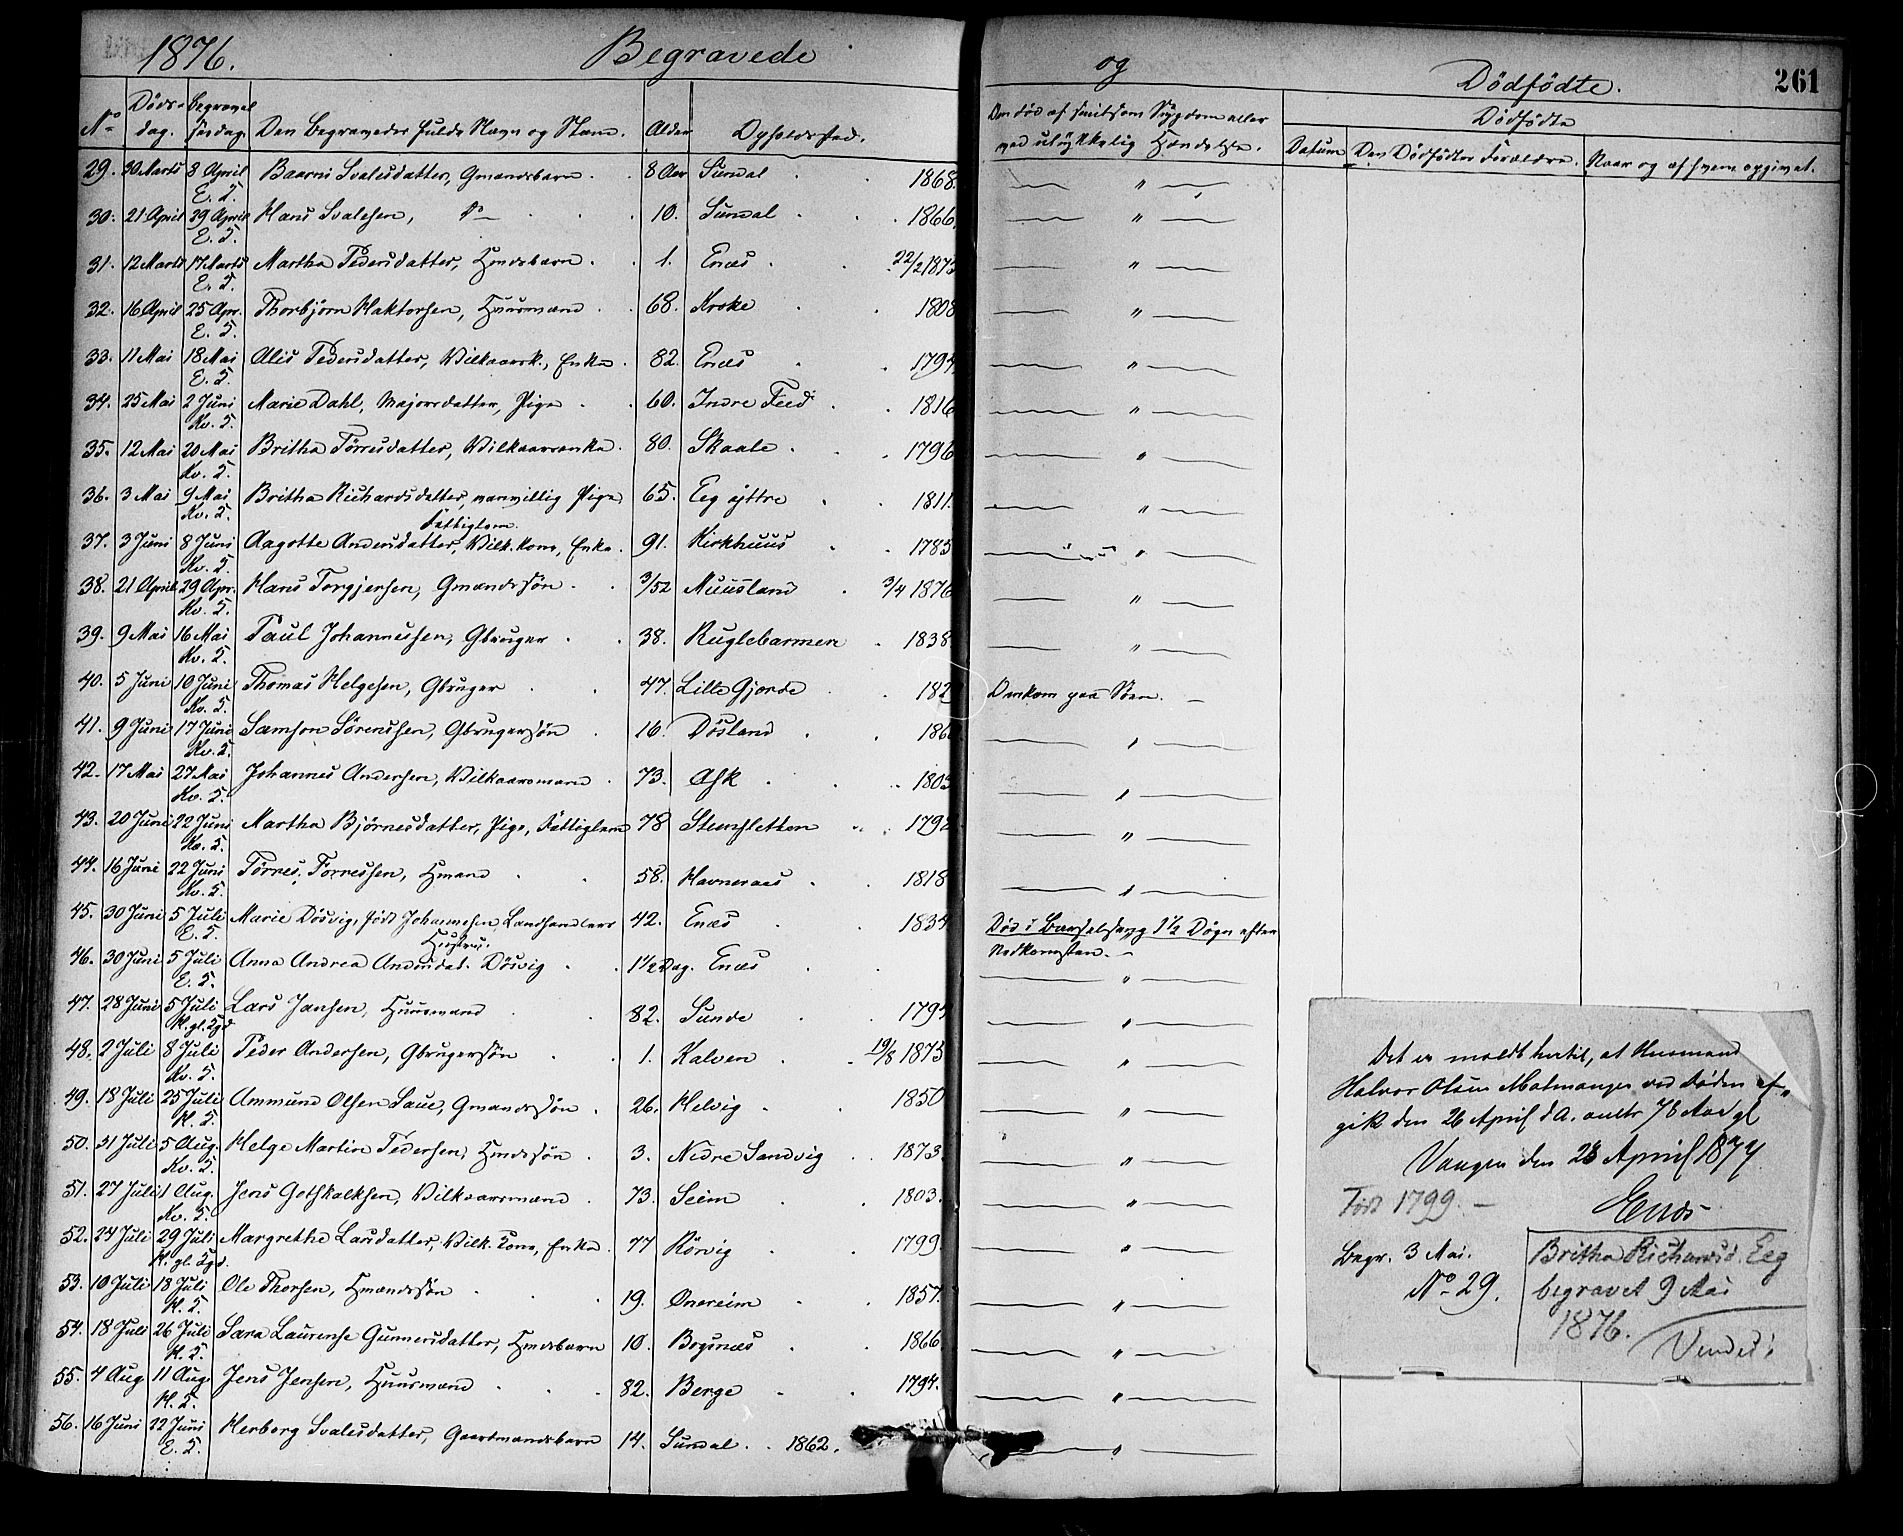 1876. Begravede og Dødfødte. 261
No Døds-dag. Begravelsesdag. Den Begravedes fulde Navn og Stand. Alder Opholdssted. Datum Den Dødfødtes Forældre. Naar og af hvem opgivet.
Dødfødte
29. 30 Marts 8 April Baarni Svalesdatter, Gmandsbarn 8 Aar Sundal 1868. "
E. 5.
30. 21 April 29 April Hans Svalesen, Do 10. Sundal 1866. "
E. 5.
31. 12 Marts 17 Marts Martha Pedersdatter, Hmdsbarn 1. Enæs 22/2 1875 "
E. 5.
32. 16 April 25 Apr. Thorbjørn Haktorsen, Huusmand 68. Kroke 1808 "
E. 5.
33. 11 Mai 18 Mai Alis Pedersdatter, Vilkaarsk., Enke 82. Enæs 1794 "
E. 5.
34. 25 Mai 2 Juni Marie Dahl, Majorsdatter, Pige 60. Indre Feed 1816 "
Kv. 5.
35. 12 Mai 20 Mai Britha Tørresdatter, Vilkaarsenke 80. Skaale 1796 "
Kv. 5.
36. 3 Mai 9 Mai Britha Richardsdatter, vanvillig Pige 65. Eeg yttre 1811. "
Kv. 5. Fattiglem.
37. 3 Juni 8 Juni Aagotte Andersdatter, Vilk. Kone, Enke 91. Kirkhuus 1785 "
Kv. 5.
38. 21 April 29 Apr. Hans Torgjersen, Gmandssøn 3/52 Muusland 3/4 1876 "
Kv. 5.
39. 9 Mai 16 Mai Paul Johannessen, Gbruger 38. Ruglebarmen 1838 "
Kv. 5.
40. 5 Juni 10 Juni Thomas Helgesen, Gbruger 47. Lille Gjerde 182 Omkom paa Søen.
Kv. 5.
41. 9 Juni 17 Juni Samson Sørensen, Gbrugersøn 16. Døsland 186 "
Kv. 5.
42. 17 Mai 27 Mai Johannes Andersen, Vilkaarsmand 73. Ask 1803 "
Kv. 5.
43. 20 Juni 22 Juni Martha Bjørnesdatter, Pige, Fattiglem 78 Stensletten 1798 "
Kv. 5.
44. 16 Juni 22 Juni Tørres Tørresen, Hmand 58. Havneraas 1818 "
Kv. 5.
45. 30 Juni 5 Juli Marie Døsvig, født Johannesen, Landhandlers 42. Enæs 1834 Død i Barselseng 1½ Døgn efter
E. 5. Hustru.
46. 30 Juni 5 Juli Anna Andrea Andersdat. Døsvig 1½ Dag. Enæs Nedkomsten.
E. 5. "
47. 28 Juni 5 Juli Lars Jansen, Huusmand 82. Sunde 1794 "
H. gl. Kgd
48. 2 Juli 8 Juli Peder Andersen, Gbrugersøn 1. Kalven 19/8 1875 "
Kv. 5.
49. 18 Juli 25 Juli Ammund Olsen Saue, Gmandssøn 26. Helvig 1850 "
H. 5.
50. 31 Juli 5 Aug. Helge Martin Pedersen, Hmdssøn 3. Nedre Sandvig 1873. "
Kv. 5.
51. 27 Juli 1 Aug. Jens Gotskalksen, Vilkaarsmand 73. Seim 1803. "
Kv. 5.
52. 24 Juli 29 Juli Margrethe Larsdatter, Vilk. Kone, Enke 77 Rørvig 1799 "
H. gl. Kgd.
53. 10 Juli 18 Juli Ole Thorsen, Hmandssøn 19. Onereim 1857. "
H. 5.
54. 18 Juli 26 Juli Sara Laurense Gunnersdatter, Hmdsbarn 10. Bogsnæs 1866 "
H. 5.
55. 4 Aug 11 Aug Jens Jensen, Huusmand 82. Berge 1794. "
H. 5.
56. 16 Juni 22 Juni Herborg Svalesdatter, Gaardmandsbarn 14. Sundal 1862. "
E. 5.
Det er meldt hertil, at Husmand
Halvor Olsen Malmanger ved Døden af-
gik den 26 April d A. omtr 78 Aar gl
Vangen den 28 April 1877
Enæs
Født 1799.
Begr. 3 Mai.
No 29.
Britha Richardsd. Eeg
begravet 9 Mai
1876.
Vendes!